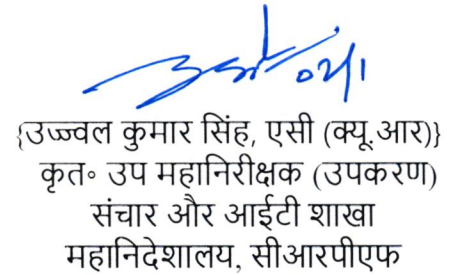 {उज्ज्वल कुमार सिंह, एसी (क्यू.आर)}
कृत॰ उप महानिरीक्षक (उपकरण)
संचार और आईटी शाखा
महानिदेशालय, सीआरपीएफ